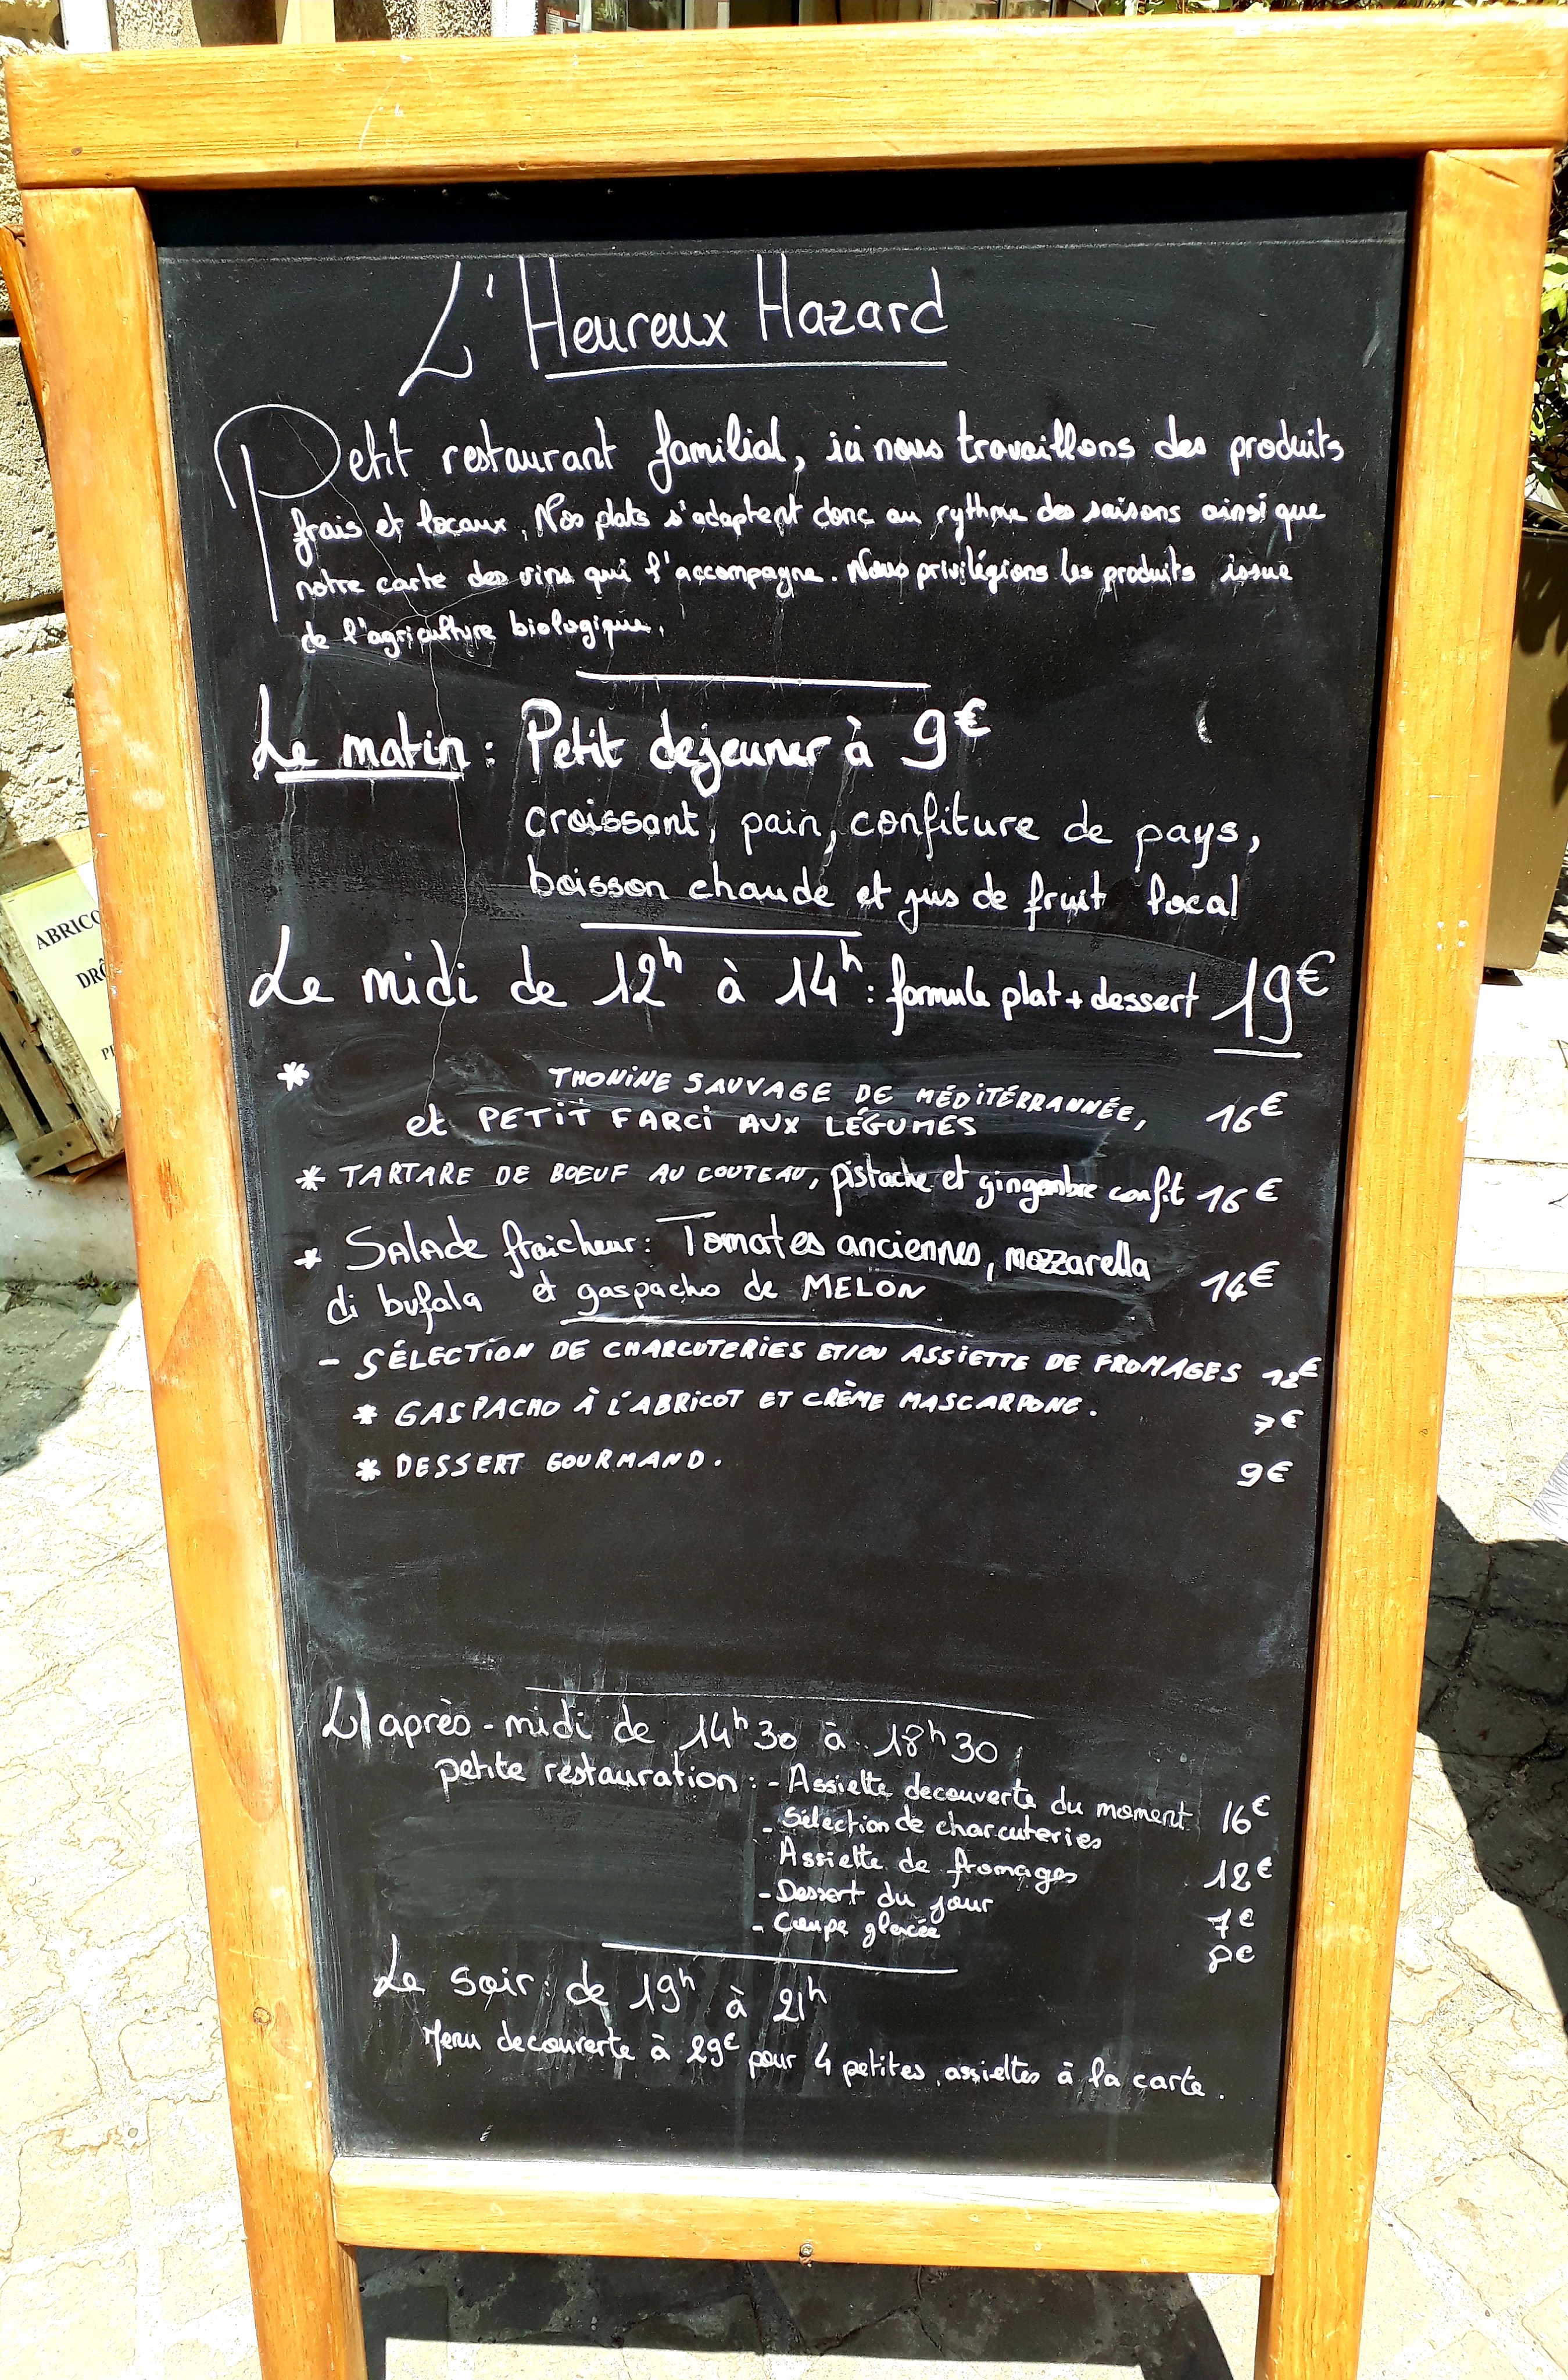 L'Heureux Hazard
Petit restaurant familial, ici nous travaillons des produits
frais et locaux. Nos plats s'adaptent donc au rythme des saisons ainsi que
notre carte des vins qui l'accompagne. Nous privilégions les produits issue
de l'agriculture biologique.
Le matin : Petit dejeuner à 9€
croissant, pain, confiture de pays,
boisson chaude et jus de fruit local
Le midi de 12h à 14h : formule plat + dessert 19€
* THONINE SAUVAGE DE MÉDITÉRRANNÉE, 16€
et PETIT FARCI AUX LÉGUMES
* TARTARE DE BOEUF AU COUTEAU, pistache et gingembre confit 16€
* SALADE fraicheur : Tomates anciennes, mozzarella
di bufala et gaspacho de MELON 14€
- SÉLECTION DE CHARCUTERIES ET/OU ASSIETTE DE FROMAGES 12€
* GASPACHO À L'ABRICOT ET CRÈME MASCARPONE. 7€
* DESSERT GOURMAND. 9€
L'après-midi de 14h30 à 18h30
petite restauration : - Assiette decouverte du moment 16€
- Sélection de charcuteries
Assiette de fromages 12€
- Dessert du jour 7€
- Coupe glacée 8€
Le soir : de 19h à 21h
Menu decouverte à 29€ pour 4 petites assiettes à la carte.
ABRICO
DRÔ